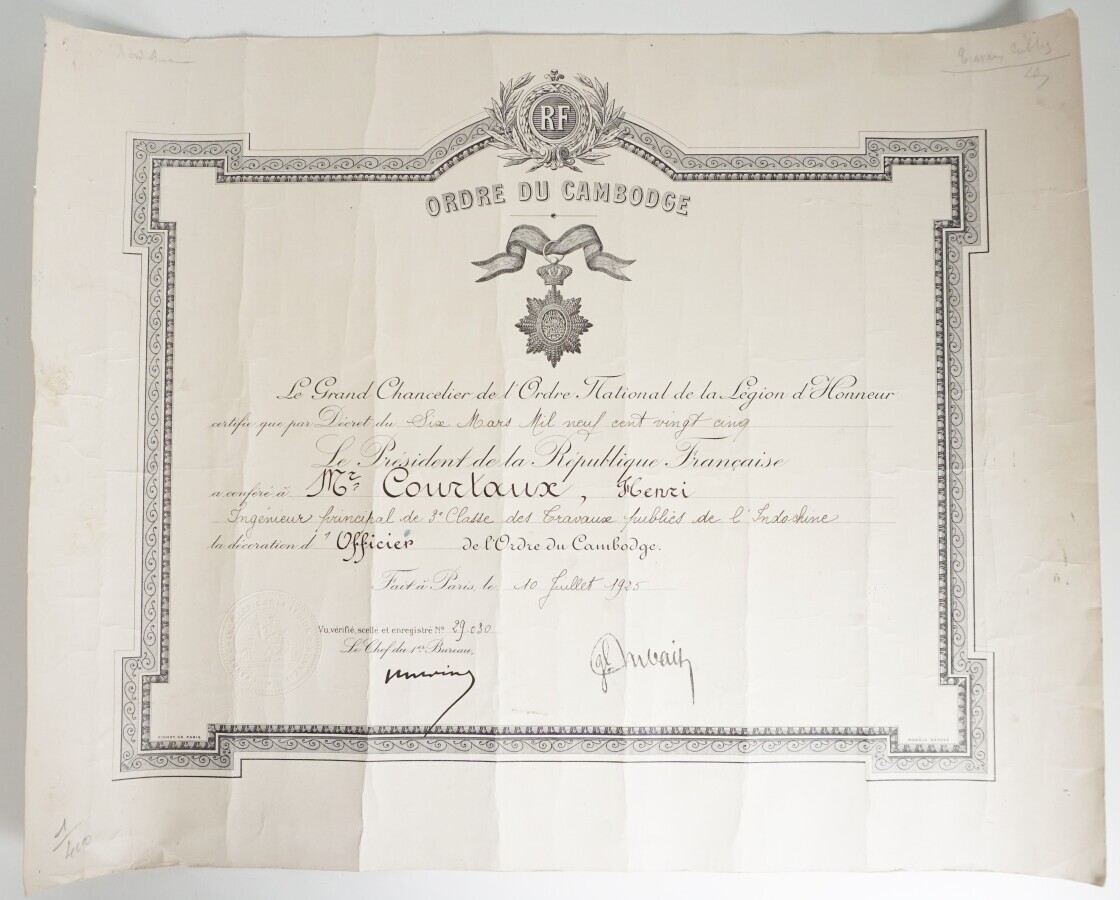 RF
ORDRE DU CAMBODGE
Le Grand Chancelier de l'Ordre National de la Légion d'Honneur
certifie que par Décret du Six Mars Mil neuf cent vingt cinq
Le Président de la République Française
a conféré à Mr Courtaux, Henri
Ingénieur principal de 3e Classe des Travaux publics de l'Indochine
la décoration d'Officier de l'Ordre du Cambodge.
Fait à Paris, le 10 Juillet 1925
Vu, vérifié, scellé et enregistré No 29.030
Le Chef du 1er Bureau,